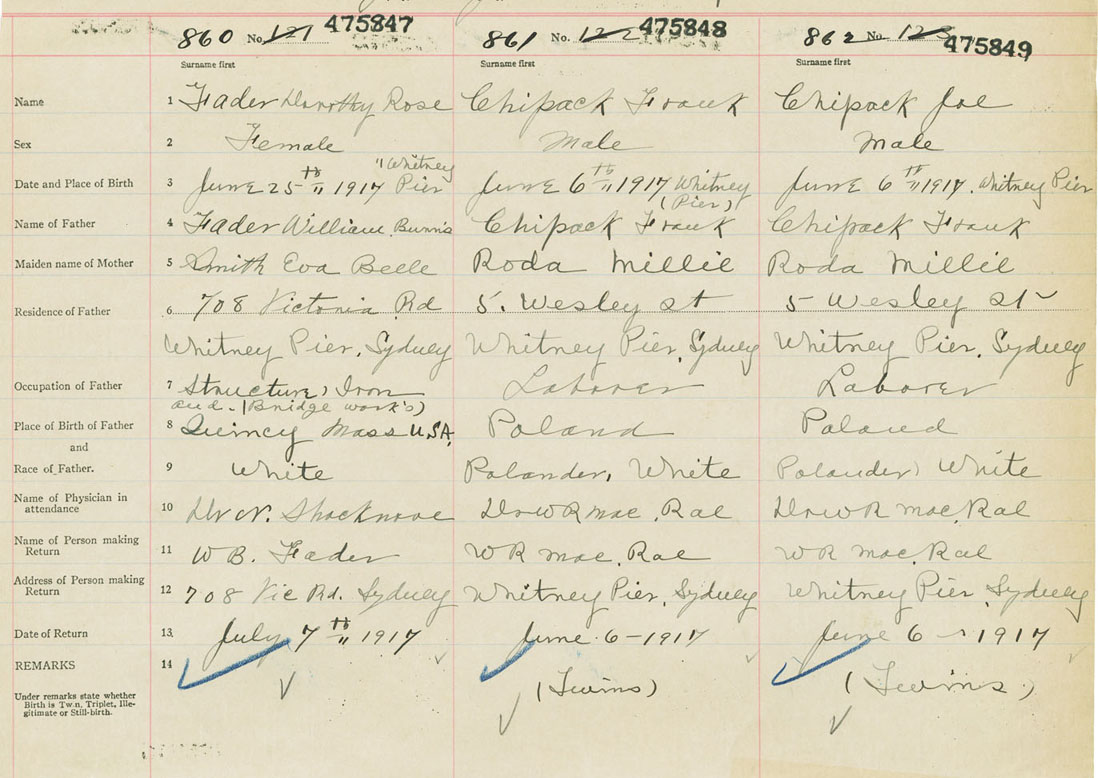 860 No. 121 475847
861 No. 122 475848
862 No. 123 475849
Surname first
Surname first
Surname first
Name 1 Fader Dorothy Rose Chipack Frank Chipack Joe
Sex 2 Female Male Male
"Whitney
Date and Place of Birth 3 June 25th 1917 Pier June 6th 1917 Whitney June 6th 1917. Whitney Pier
(Pier)
Name of Father 4 Fader William Burns Chipack Frank Chipack Frank
Maiden name of Mother 5 Smith Eva Belle Roda Millie Roda Millie
Residence of Father 6 708 Victoria Rd 5. Wesley st 5 Wesley st
Whitney Pier, Sydney Whitney Pier, Sydney Whitney Pier, Sydney
Occupation of Father 7 Structure, Iron Laborer Laborer
and (Bridge work's)
Place of Birth of Father 8 Quincy Mass U.S.A. Poland Poland
and
Race of Father. 9 White Polander, White Polander, White
Name of Physician in
attendance 10 Dr W R Mac. Rae Dr W R Mac. Rae
Name of Person making
Return 11 W B. Fader W R Mac. Rae W R Mac. Rae
Address of Person making
Return 12 708 Vic Rd. Sydney Whitney Pier, Sydney Whitney Pier, Sydney
Date of Return 13 July 7th 1917 June 6-1917 June 6-1917
REMARKS 14
(Twins) (Twins)
Under remarks state whether
Birth is Twin, Triplet, Ille-
gitimate or Still-birth.